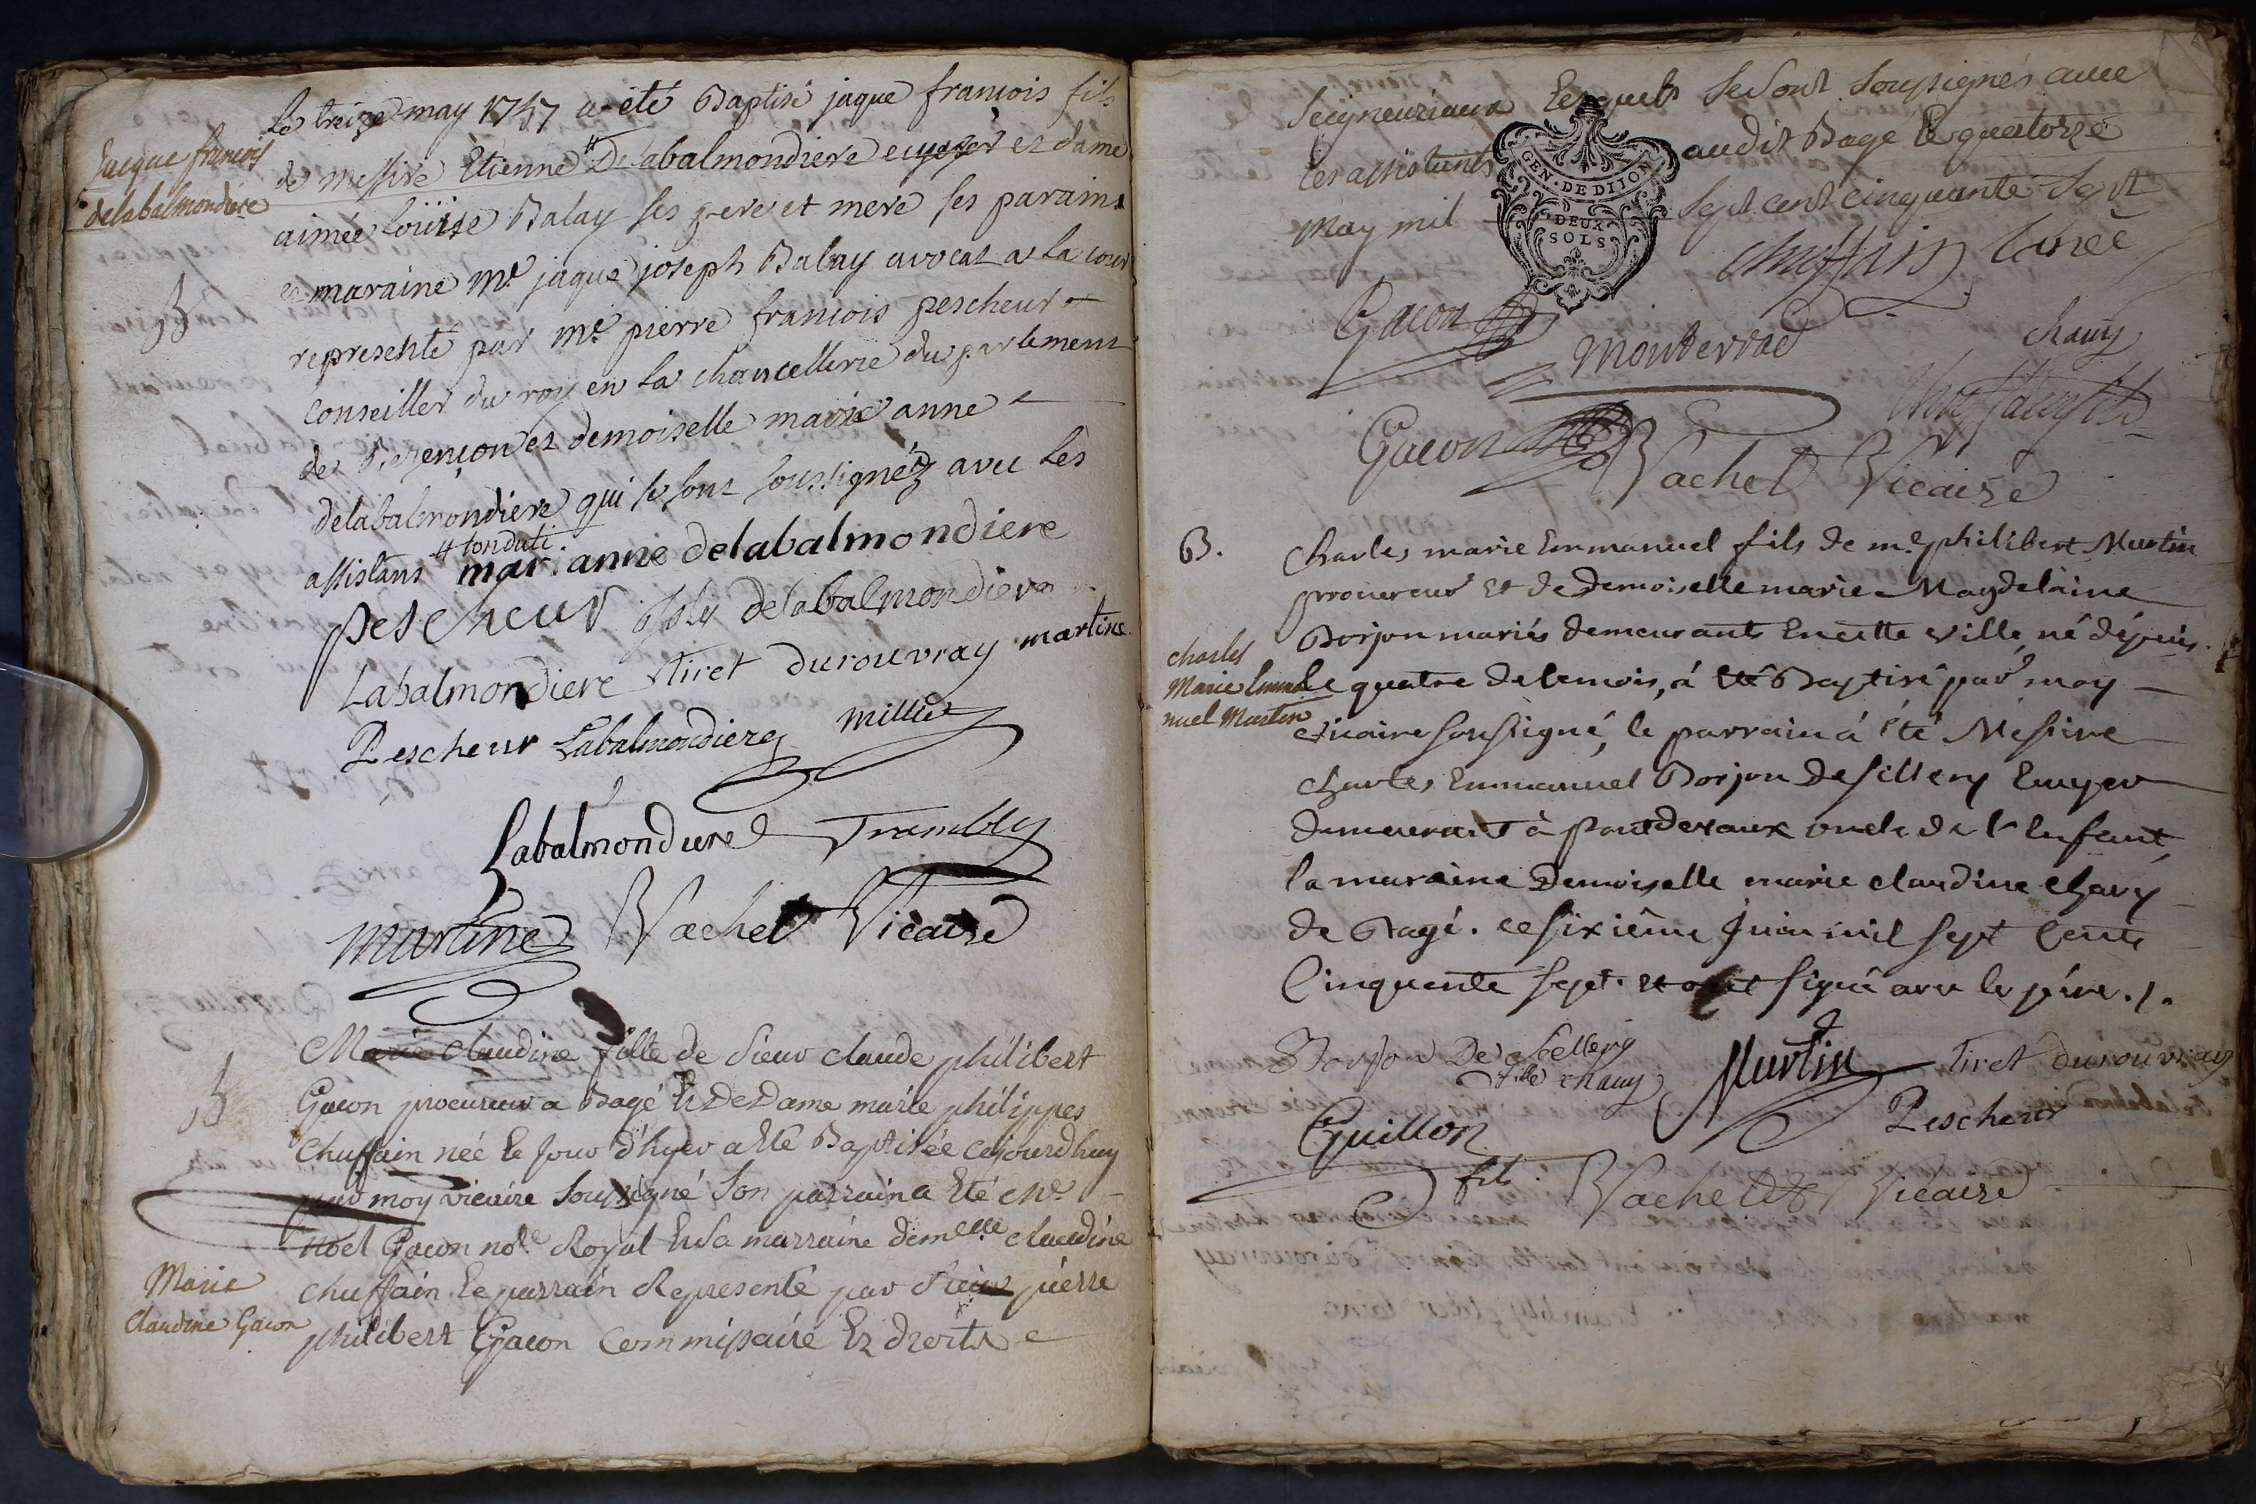 Le treize may 1757 a été Baptisé jaque francois fils
Jacque francois
delabalmondiere
de Messire Etienne # Delabalmondiere ecuyer et dame
aimée loüise Balay ses pere et mere ses parains
B
et maraine Me. jaque joseph Balay avocat a la cour
representé par Me. pierre francois pescheur
conseiller du roy en la chancellerie du parlement
de Bezençon et demoiselle marie anne
delabalmondiere qui se sont soussignéz avec les
assistans # tonduti.
mar. anne delabalmondiere
pescheur delabalmondiere
Labalmondiere Tiret durouvray martine
Pescheur Labalmondiere millet
Labalmondiere Trambly
martine Vachet Vicaire
B
Marie Claudine fille de Sieur claude philibert
Gacon procureur a Bagé Et de Dame marie philippes
Chuffain née le jour d'hyer a eté Baptisée cejourdhuy
par moy vicaire soussigné Son parrain a Eté Me.
noel Gacon not.e Royal Et Sa marraine demelle claudine
Marie
Claudine Gacon
chuffain le parrain Representé par Sieur pierre
philibert Gacon Commissaire Ez droits
Seigneuriaux Lesquels Se sont soussignés avec
les assistants audit Bagé le quatorze
May mil Sept cent cinquante Sept
GEN. DE DIJON
DEUX
SOLS
chuffain Curé
Gacon
Monterrad
chavy
chuffain fils
Gacon
Vachet Vicaire
B.
Charles marie Emmanuel fils de me. philibert Martin
procureur et de Demoiselle marie Magdelaine
Borjon mariés demeurants En cette ville, né dépuis
Charles
Marie Emma
nuel Martin
le quatre de ce mois, á eté Baptisé par moy
vicaire soussigné, le parrain á été Messire
Charles Emmanuel Borjon de sillery Ecuyer
demeurant à pontdevaux oncle de l'enfant,
la maraine Demoiselle marie claudine chavy
de Bagé. ce sixiême Juin mil sept cents
Cinquante sept. et ont signé avec le pére ./.
Borjon De Scellery
fille chavy
Martin
Tiret durouvray
Guillon
fils
Pescheur
Vachet Vicaire